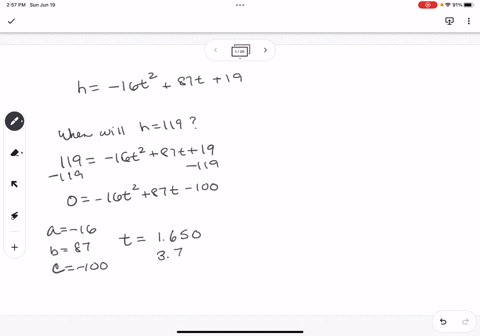 2:57 PM Sun Jun 19
91%
1/20
h = -16t² + 87t + 19
When will h = 119?
119 = -16t² + 87t + 19
-119 -119
0 = -16t² + 87t - 100
a = -16
b = 87
c = -100
t = 1.650
3.7